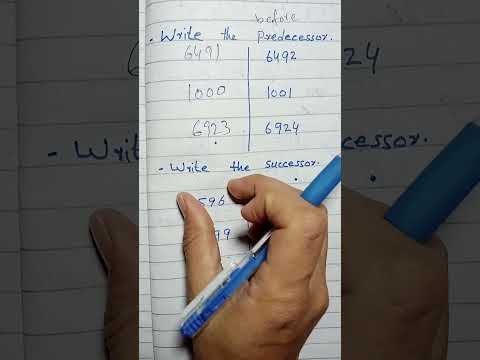 before
. Write the Predecessor.
6491 6492
1000 1001
6923 6924
- Write the successor.